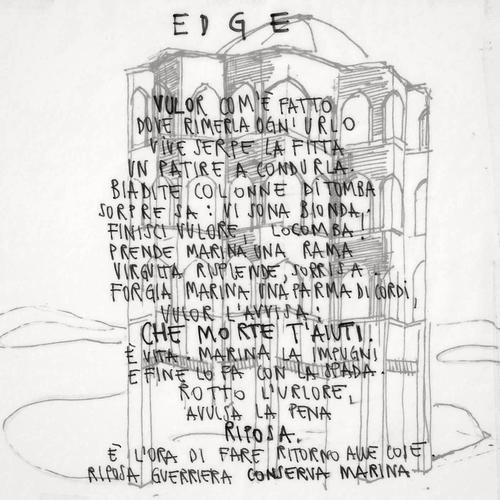 EDGE
VULOR COM'È FATTO
DOVE RIMERLA OGNI URLO
VIVE SERPE LA FITTA
UN PATIRE A CONDURLA.
BIADITE COLONNE DI TOMBA
SORPRESA: VI SONA BIONDA,
FINISCI VULORE, LOCOMBA!
PRENDE MARINA UNA RAMA
VIRGULTA RISPLENDE, SORRISA.
FORGIA MARINA UNA PARMA DI CORDI,
VULOR L'AVVISA:
CHE MORTE T'AIUTI.
È VITA. MARINA LA IMPUGNI
E FINE LO FA CON LA SPADA.
ROTTO L'URLORE,
AVULSA LA PENA
RIPOSA.
È L'ORA DI FARE RITORNO ALLE COSE.
RIPOSA GUERRIERA CONSERVA MARINA